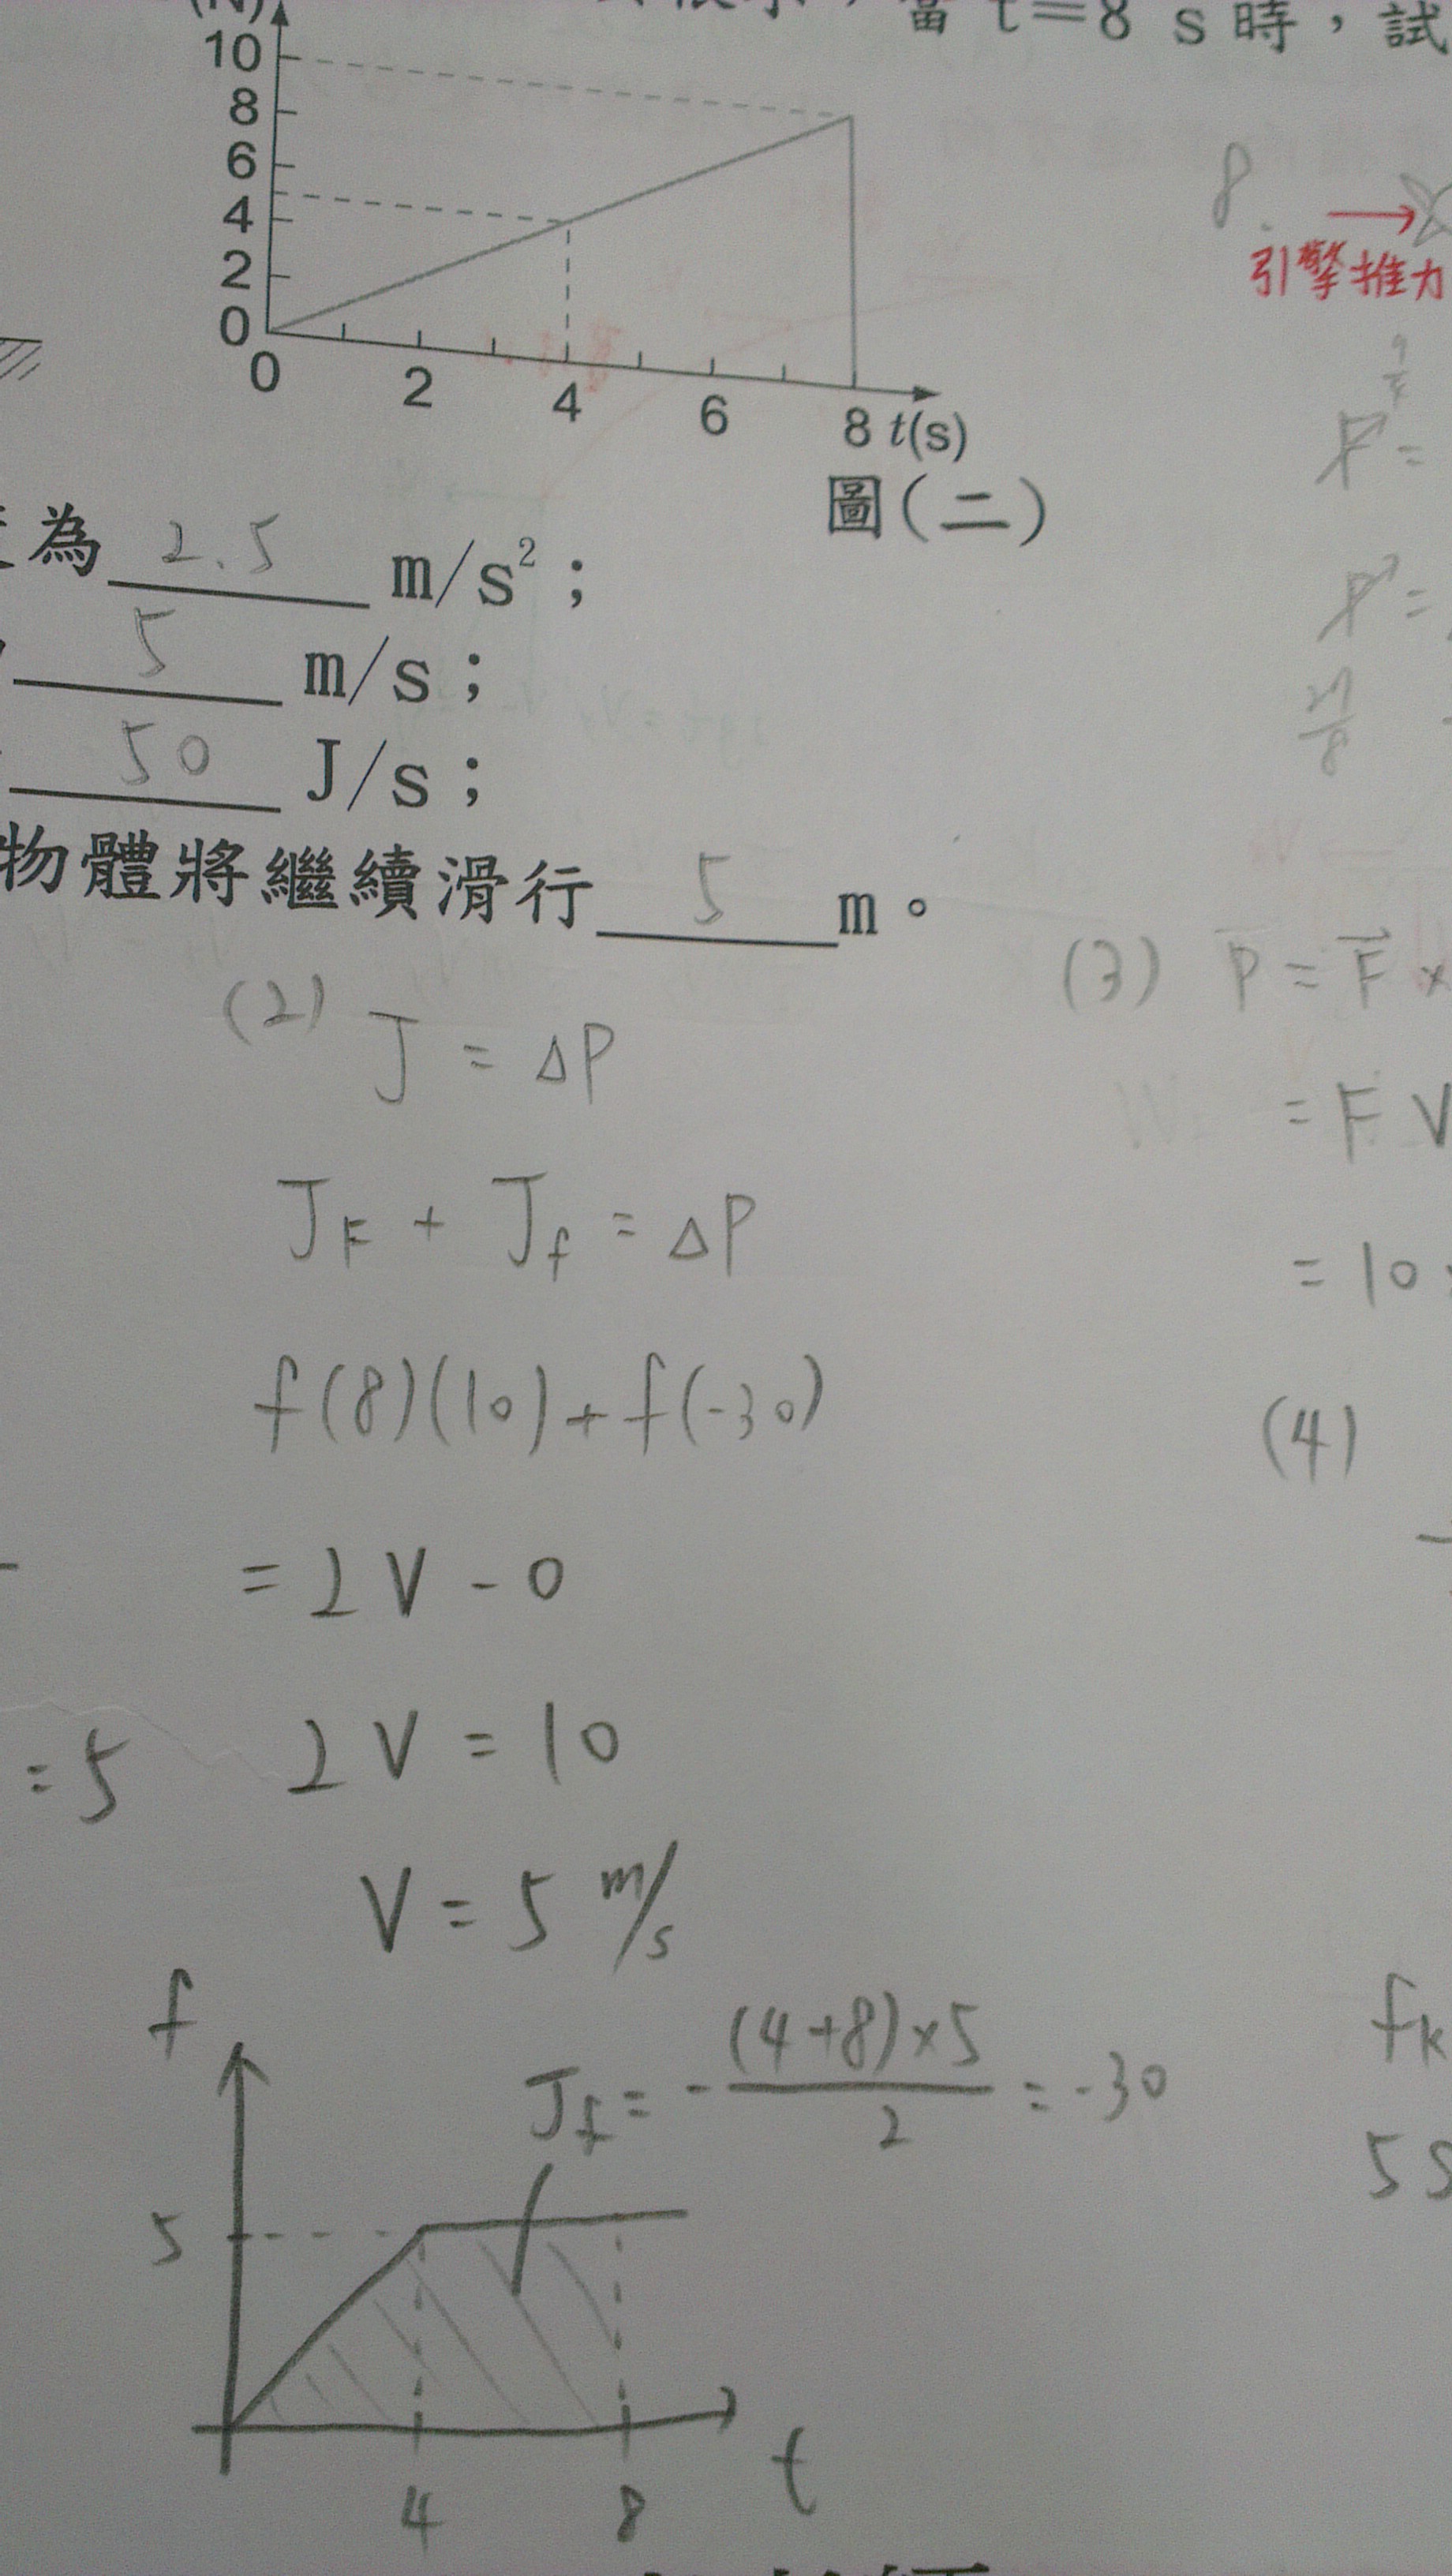 (N)
當 t=8 s 時，試
10
8
6
4
2
0
0
2
4
6
8 t(s)
圖(二)
8.
引擎推力
為 2.5 m/s²；
5 m/s；
50 J/s；
物體將繼續滑行 5 m。
(2) J = ΔP
J_F + J_f = ΔP
f(8)(10) + f(-30)
= 2V - 0
= 5
2V = 10
V = 5 m/s
(3) P = F ×
= F V
= 10
(4)
f
J_f = -(4+8)×5/2 = -30
5
4
8
t
f_k
5S